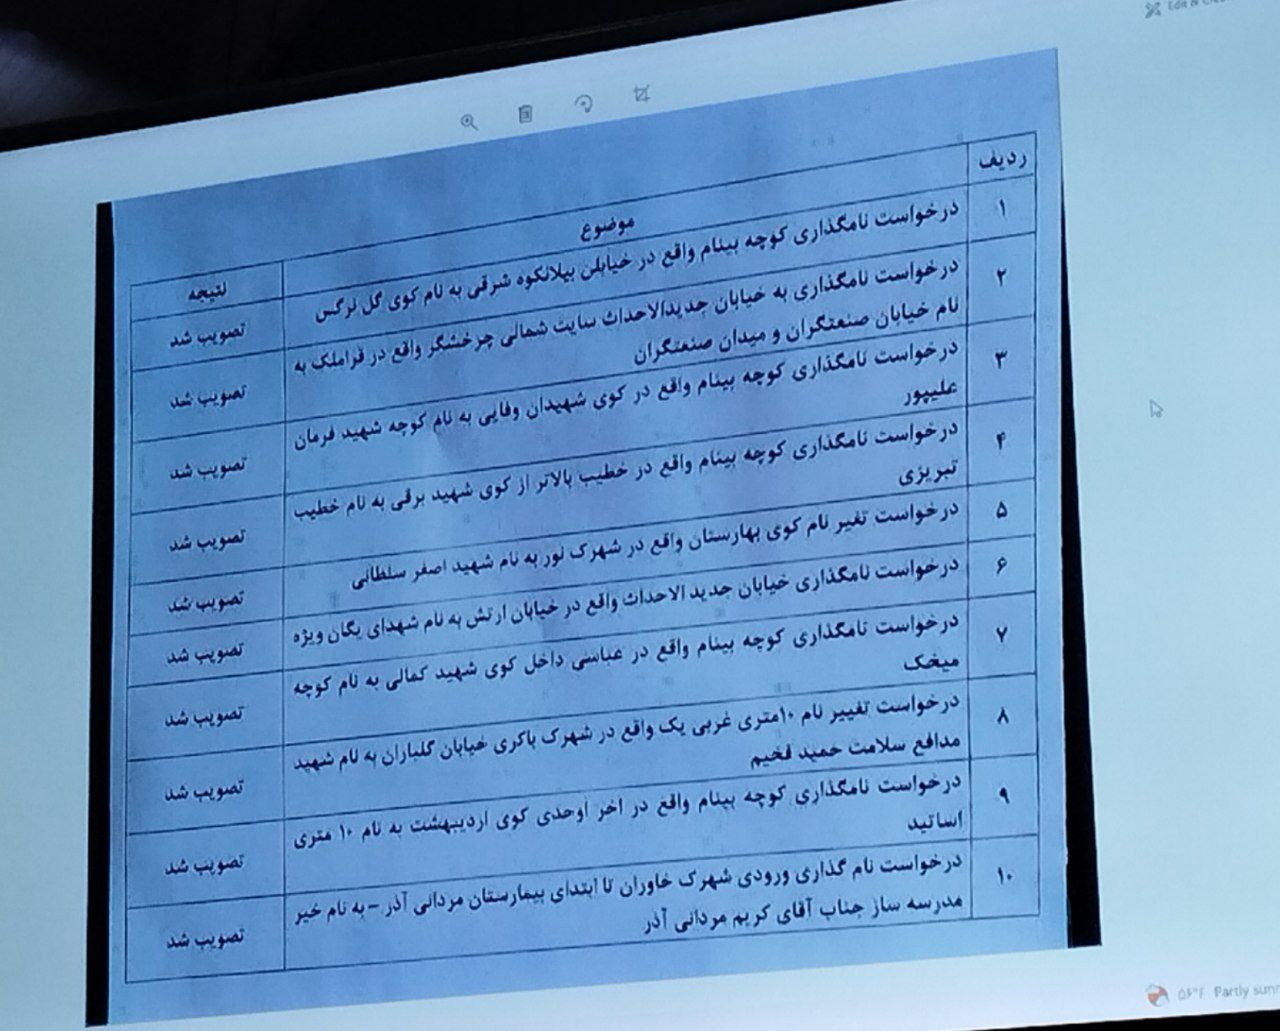 Edit &
ردیف موضوع نتیجه
۱ درخواست نامگذاری کوچه بینام واقع در خیابان بیلانکوه شرقی به نام کوی گل نرگس تصویب شد
۲ درخواست نامگذاری به خیابان جدیدالاحداث سایت شمالی چرخشگر واقع در قراملک به
نام خیابان صنعتگران و میدان صنعتگران تصویب شد
۳ درخواست نامگذاری کوچه بینام واقع در کوی شهیدان وفایی به نام کوچه شهید فرمان
علیپور تصویب شد
۴ درخواست نامگذاری کوچه بینام واقع در خطیب بالاتر از کوی شهید برقی به نام خطیب
تبریزی تصویب شد
۵ درخواست تغیر نام کوی بهارستان واقع در شهرک نور به نام شهید اصغر سلطانی تصویب شد
۶ درخواست نامگذاری خیابان جدید الاحداث واقع در خیابان ارتش به نام شهدای یگان ویژه تصویب شد
۷ درخواست نامگذاری کوچه بینام واقع در عباسی داخل کوی شهید کمالی به نام کوچه
میخک تصویب شد
۸ درخواست تغییر نام ۱۰متری غربی یک واقع در شهرک باکری خیابان گلباران به نام شهید
مدافع سلامت حمید فخیم تصویب شد
۹ درخواست نامگذاری کوچه بینام واقع در اخر اوحدی کوی اردیبهشت به نام ۱۰ متری
اساتید تصویب شد
۱۰ درخواست نام گذاری ورودی شهرک خاوران تا ابتدای بیمارستان مردانی آذر – به نام خیر
مدرسه ساز جناب آقای کریم مردانی آذر تصویب شد
Partly sunn